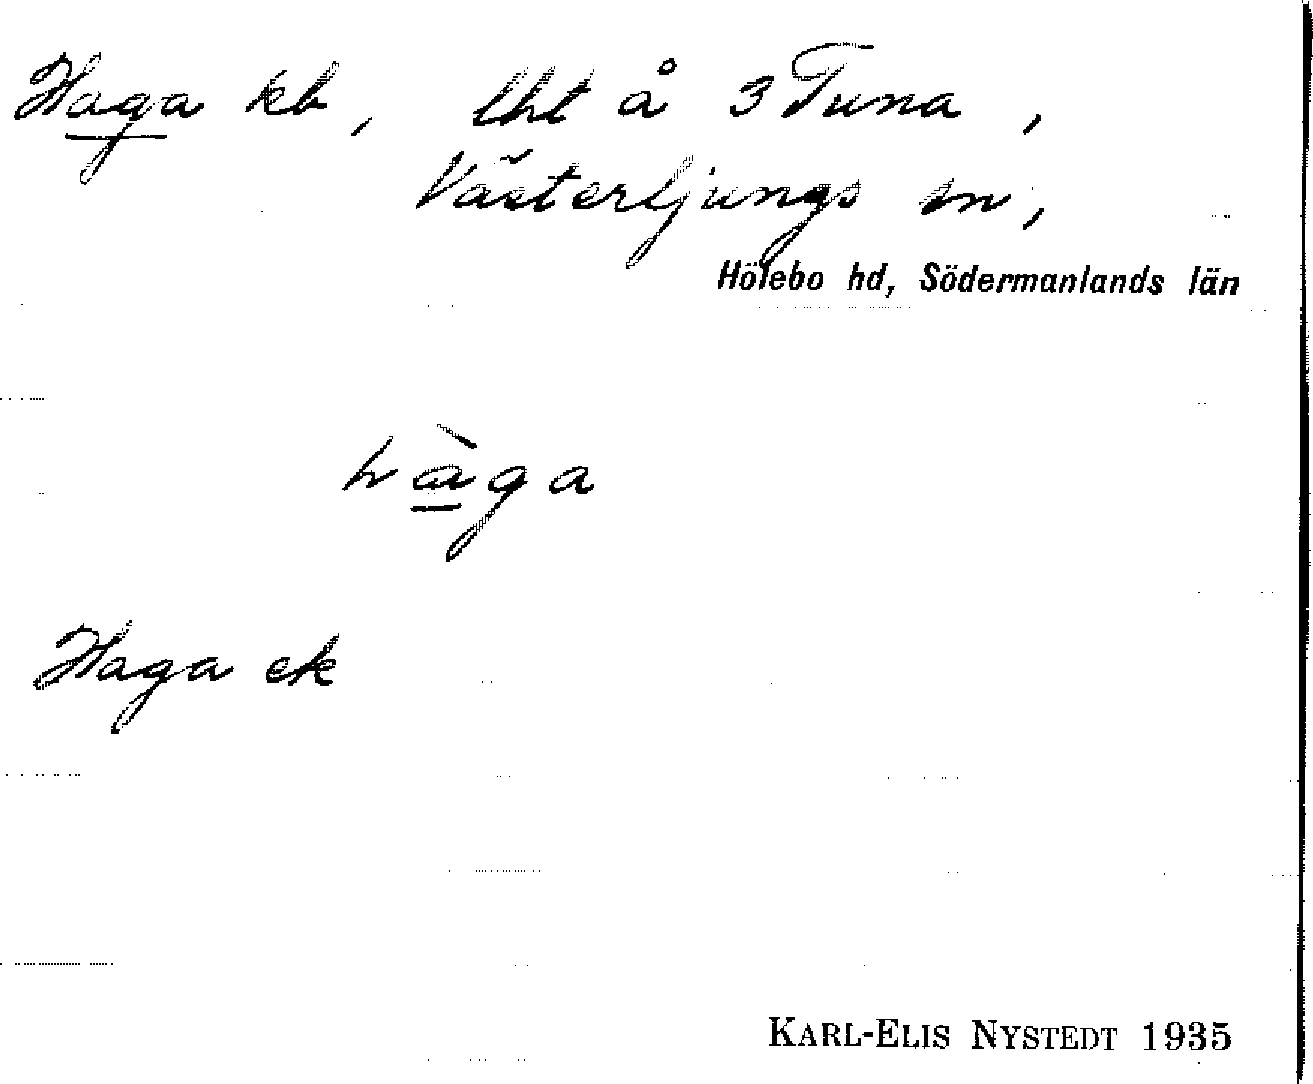 Haga kb, lht å 3 Tuna,
Västerljungs sn,
Hölebo hd, Södermanlands län
hàga
Haga ek
KARL-ELIS NYSTEDT 1935